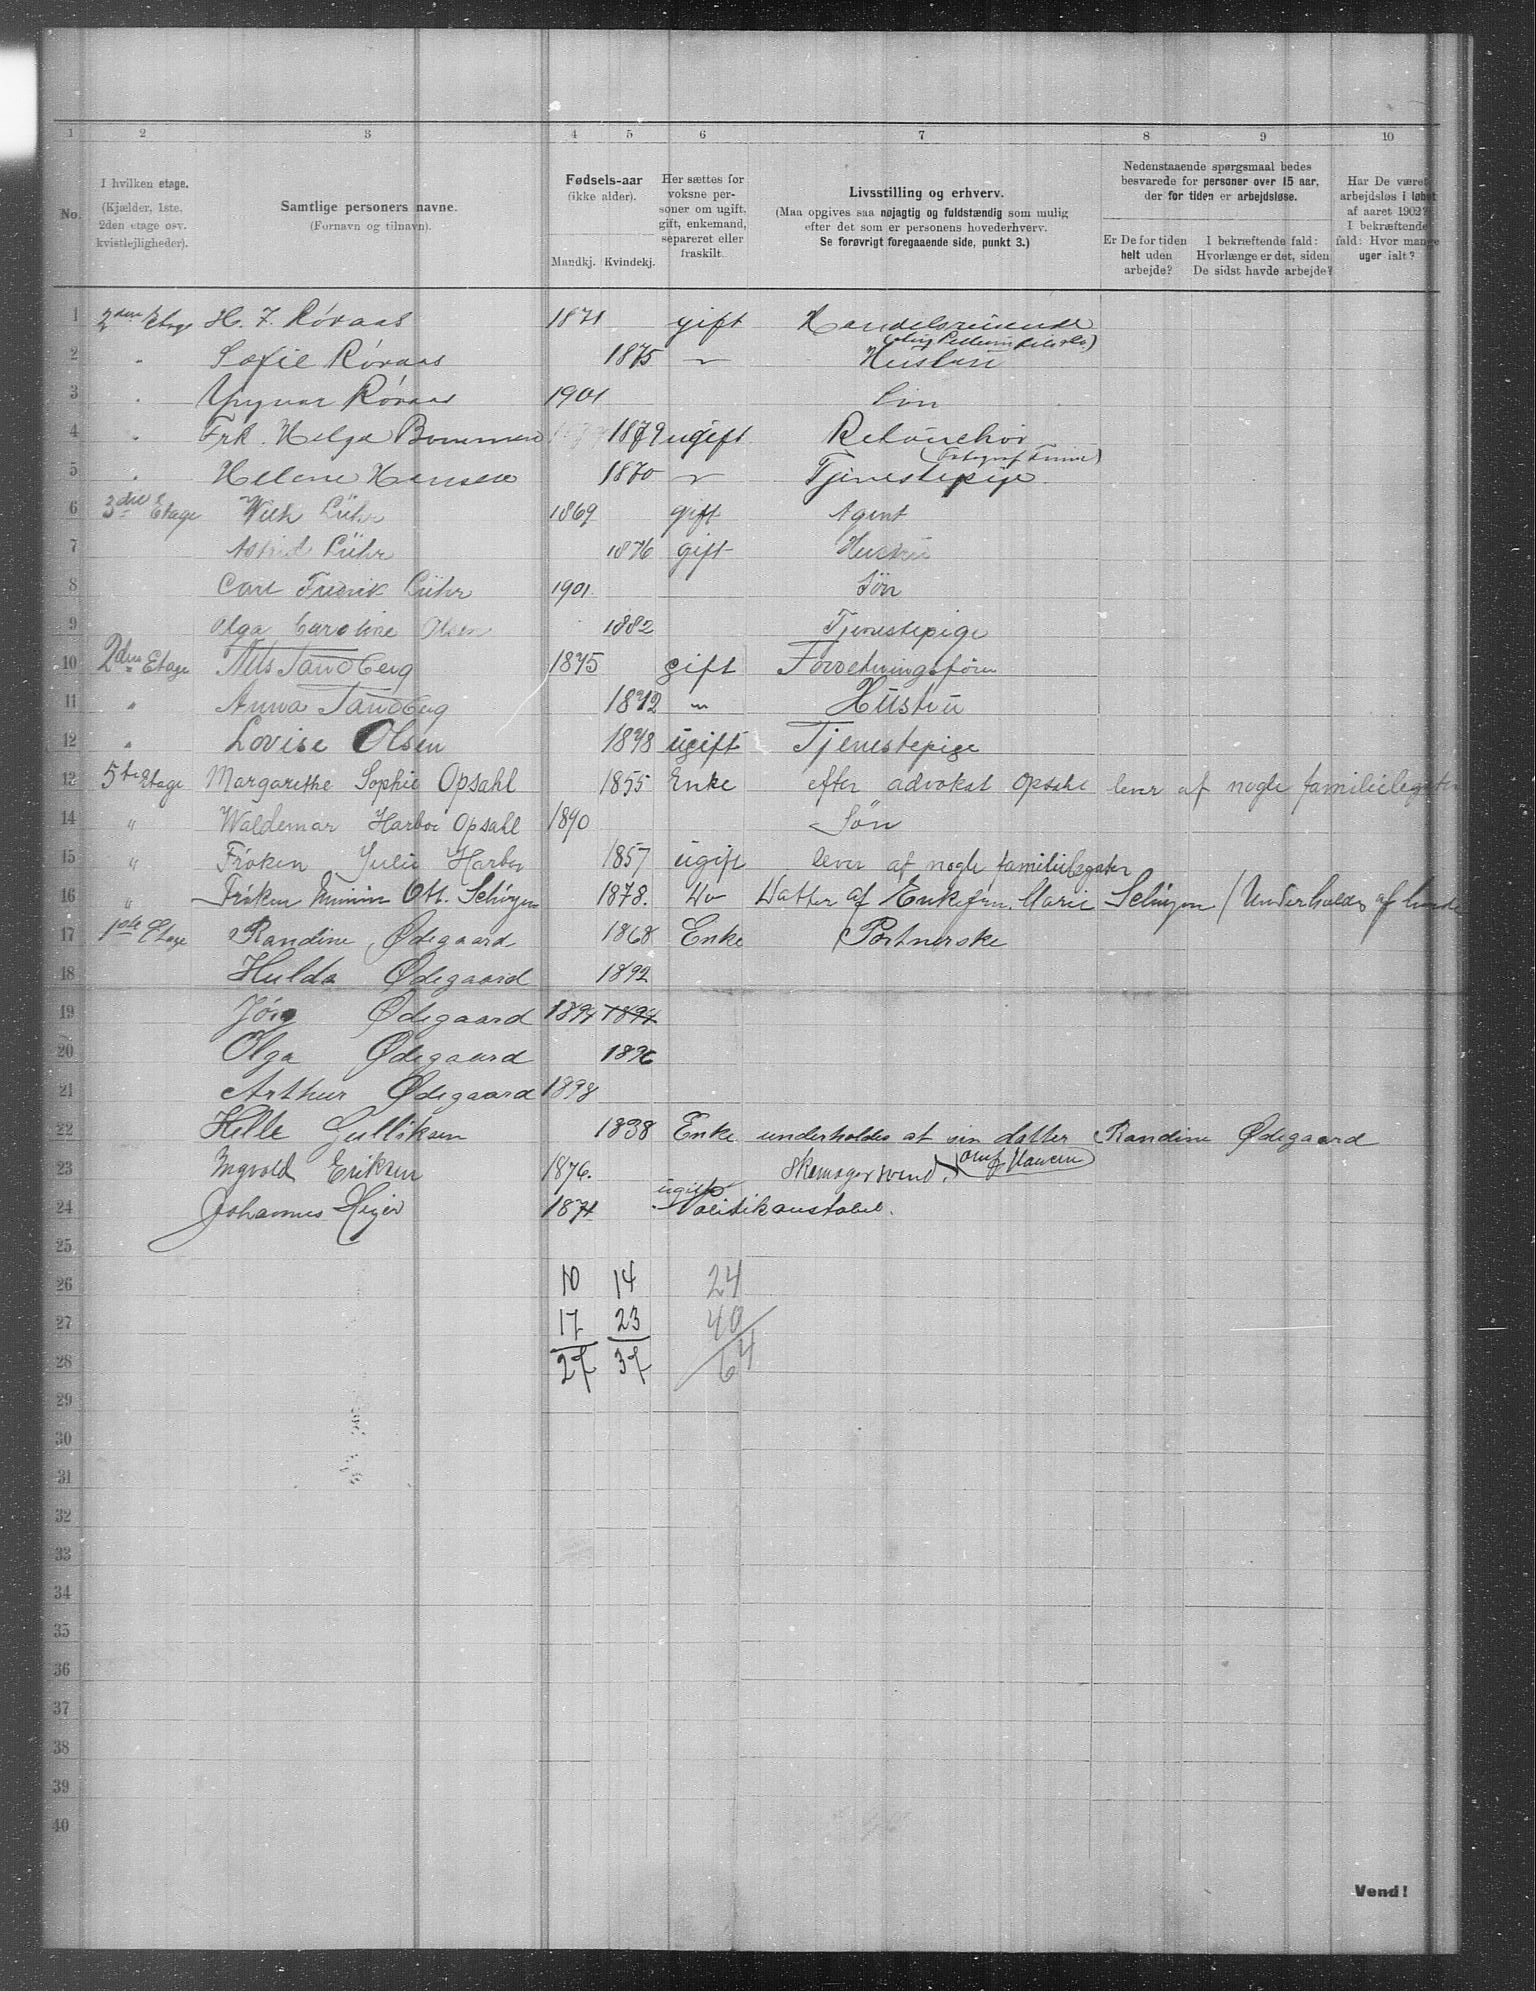 1 2 3 4 5 6 7 8 9 10
No.
I hvilken etage.
(Kjælder, 1ste.
2den etage osv.
kvistlejligheder).
Samtlige personers navne.
(Fornavn og tilnavn).
Fødsels-aar
(ikke alder).
Mandkj. Kvindekj.
Her sættes for
voksne per-
soner om ugift,
gift, enkemand,
separeret eller
fraskilt.
Livsstilling og erhverv.
(Maa opgives saa nøjagtig og fuldstændig som mulig
efter det som er personens hovederhverv.
Se forøvrigt foregaaende side, punkt 3.)
Nedenstaaende spørgsmaal bedes
besvarede for personer over 15 aar,
der for tiden er arbejdsløse.
Er De for tiden
helt uden
arbejde?
I bekræftende fald:
Hvorlænge er det, siden
De sidst havde arbejde?
Har De været
arbejdsløs i løbet
af aaret 1902?
I bekræftende
fald: Hvor mange
uger ialt?
1 2den Etage H. F. Røraas 1871 gift Handelsreisende
2 " Sofie Røraas 1875 " Hustru
3 " Yngvar Røraas 1901 Søn
4 " Frk. Helga Bommen 1879 ugift Retouchør
5 " Helene Hansen 1870 " Tjenestepige
6 3die Etage Wilh Lühr 1869 gift Agent
7 Astrid Lühr 1876 gift Hustru
8 Carl Fredrik Lühr 1901 Søn
9 Olga Caroline Olsen 1882 Tjenestepige
10 2den Etage Nils Sandberg 1875 gift Forretningsfører
11 " Anna Sandberg 1872 " Hustru
12 " Lovise Olsen 1878 ugift Tjenestepige
13 5te Etage Margarethe Sophie Opsahl 1855 Enke efter advokat Opsahl lever af nogle familielegater
14 " Waldemar Harboe Opsahl 1890 Søn
15 " Frøken Julie Harboe 1857 ugift lever af nogle familielegater
16 " Frøken Ott. 1878. Do Datter af Enkefru Marie / Underholdes af
17 1ste Etage Randine Ødegaard 1868 Enke Portnerske
18 Hulda Ødegaard 1892
19 Ødegaard 1894 1894
20 Olga Ødegaard 1896
21 Arthur Ødegaard 1898
22 Helle Gulliksen 1838 Enke underholdes af sin datter Randine Ødegaard
23 Ingvold Eriksen 1876. Skomagersvend. Hansen
24 Johannes Meyer 1874 ugift Politikonstabel.
25
26 10 14 24
27 17 23 40
28 27 37 64
29
30
31
32
33
34
35
36
37
38
39
40
Vend!